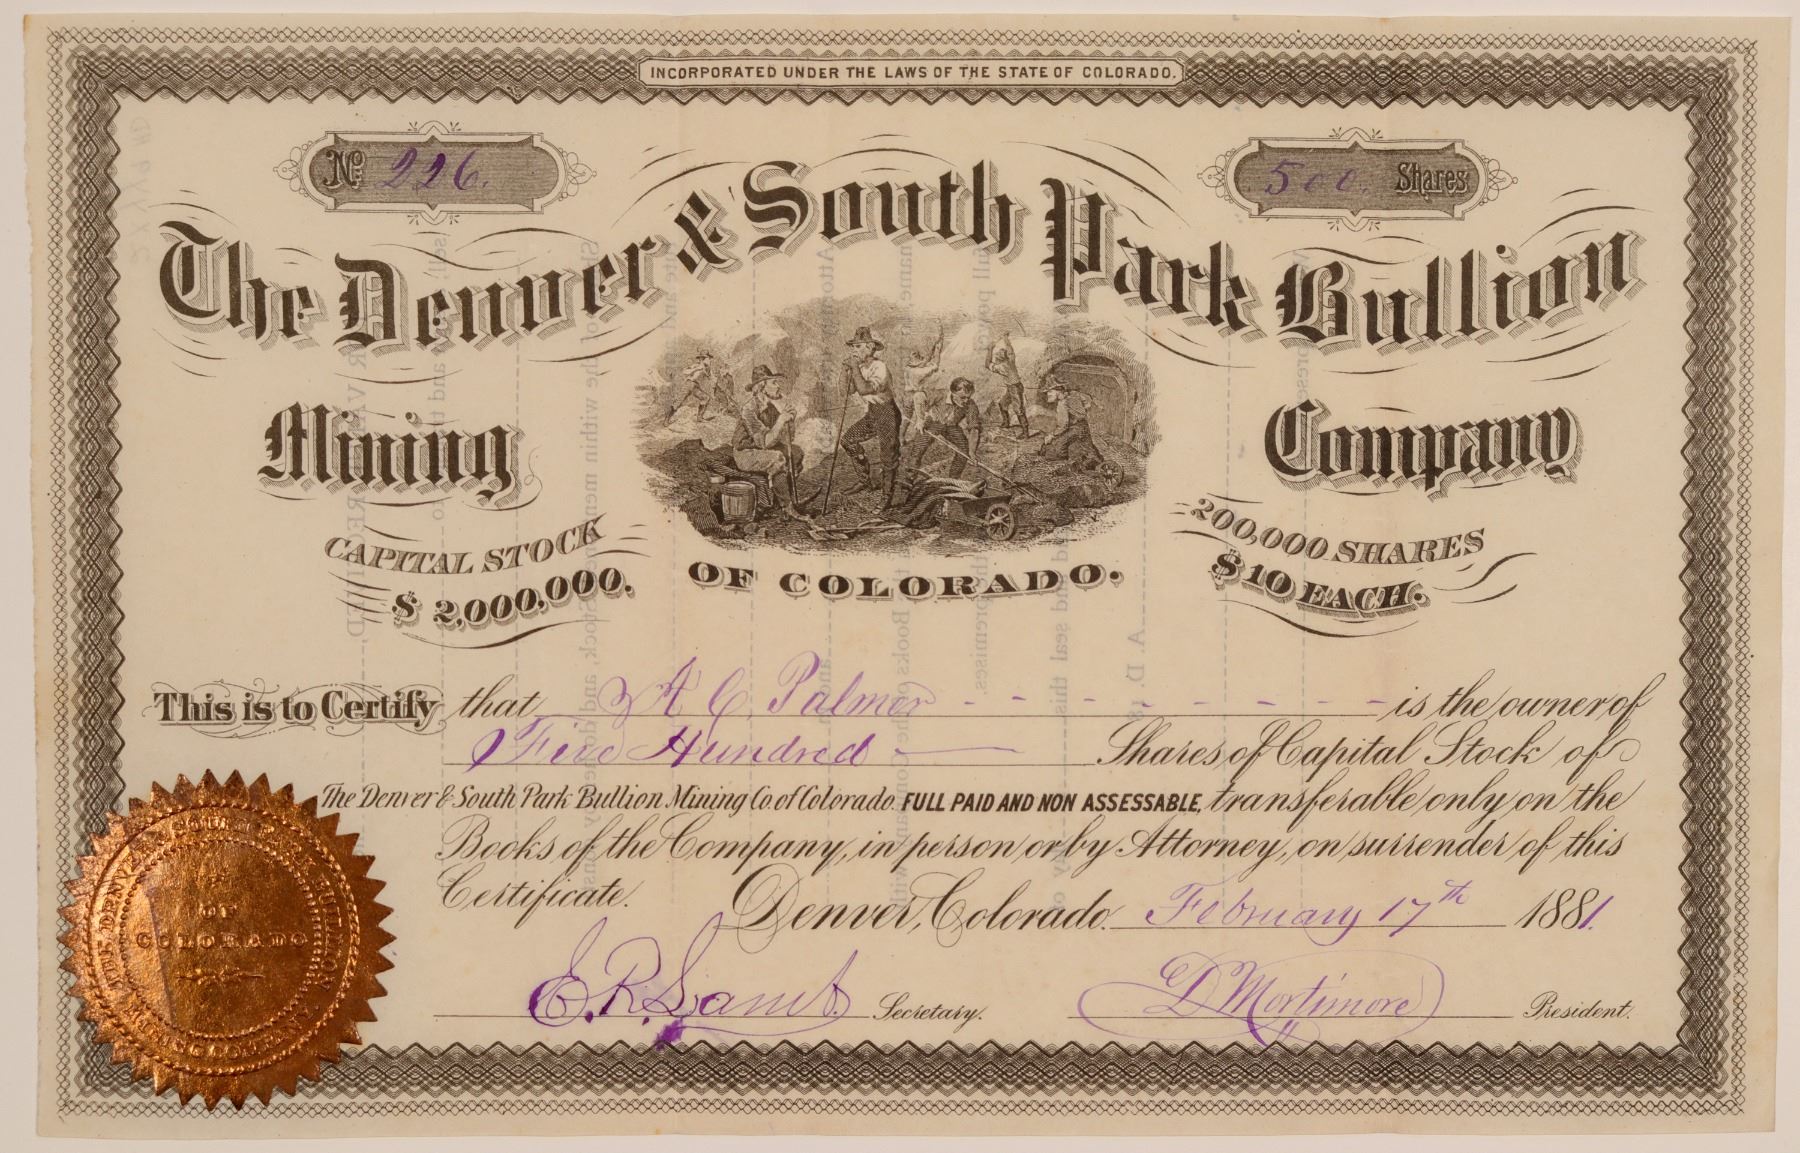 INCORPORATED UNDER THE LAWS OF THE STATE OF COLORADO.
No. 226.
500. Shares
The Denver & South Park Bullion
Mining Company
CAPITAL STOCK
$2,000,000.
OF COLORADO.
200,000 SHARES
$10 EACH.
This is to Certify that A C Palmer is the owner of
Five Hundred Shares of Capital Stock of
The Denver & South Park Bullion Mining Co. of Colorado. FULL PAID AND NON ASSESSABLE, transferable only on the
Books of the Company, in person or by Attorney, on surrender of this
Certificate. Denver, Colorado. February 17th 1881.
E. R. Secretary.
D Mortimore President.
THE DENVER & SOUTH PARK BULLION MINING COMPANY
OF
COLORADO